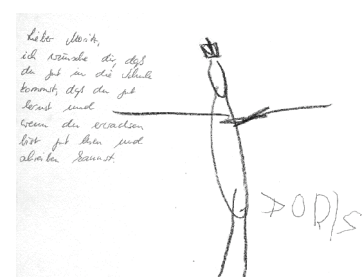 Lieber Moritz,
ich wünsche dir, daß
du gut in die Schule
kommst, daß du gut
lernst und
wenn du erwachsen
bist gut lesen und
schreiben kannst.
DORIS